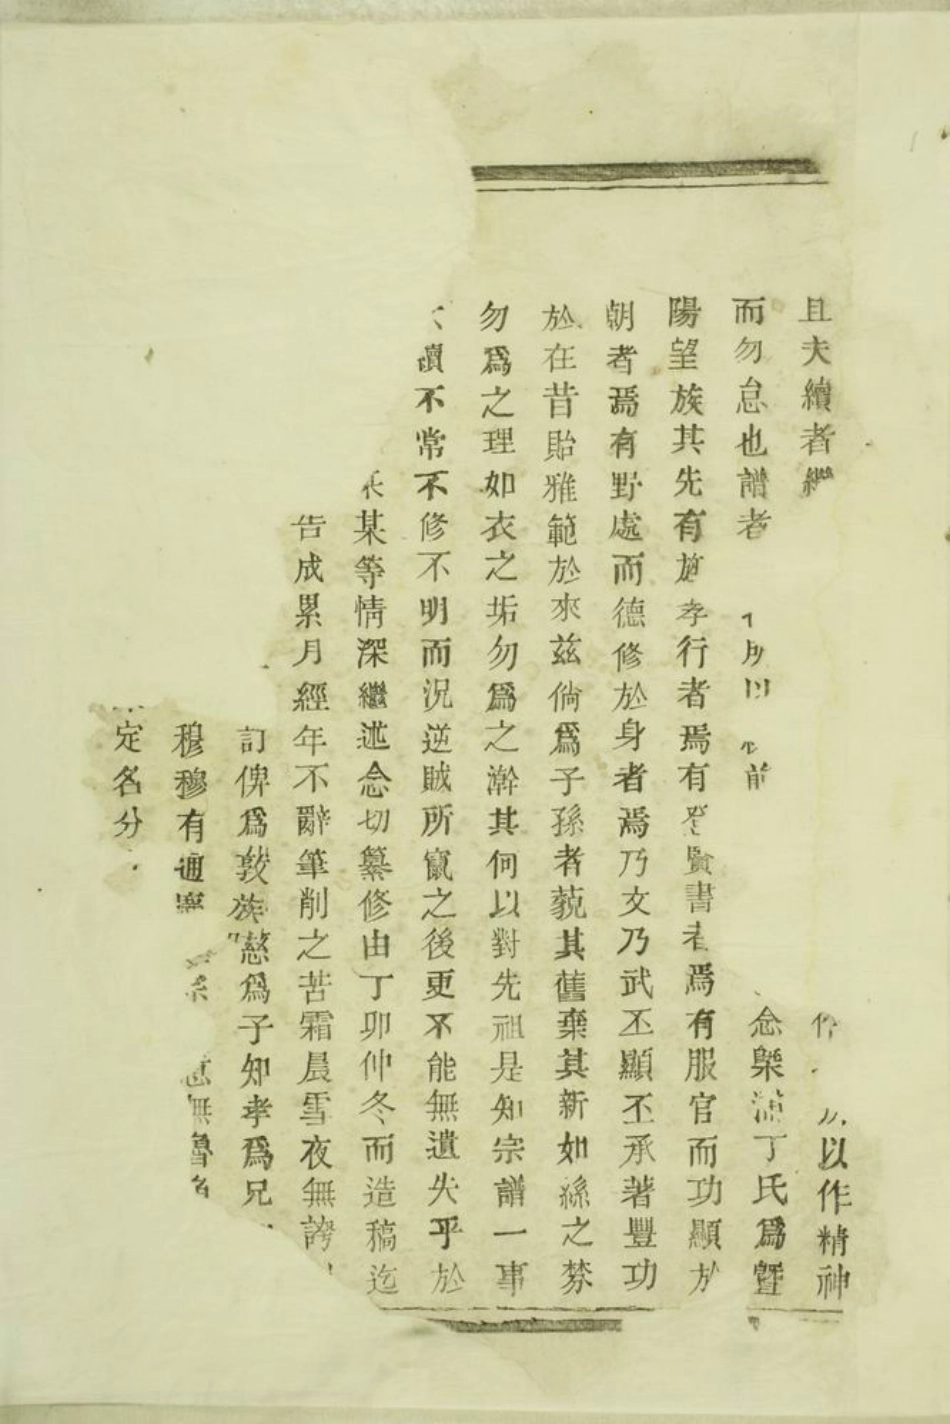 且夫續者繼以作精神
而勿怠也譜者所以前念槩浦丁氏爲暨
陽望族其先有施孝行者焉有登賢書者焉有服官而功顯於
朝者焉有野處而德修於身者焉乃文乃武丕顯丕承著豐功
於在昔貽雅範於來茲倘爲子孫者藐其舊棄其新如絲之棼
勿爲之理如衣之垢勿爲之澣其何以對先祖是知宗譜一事
不續不常不修不明而況逆賊所竄之後更不能無遺失乎於
某等情深繼述念切纂修由丁卯仲冬而造稿迄
告成累月經年不辭筆削之苦霜晨雪夜無誇
訂俾爲敦族慈爲子知孝爲兄
穆穆有迪系無魯
定名分